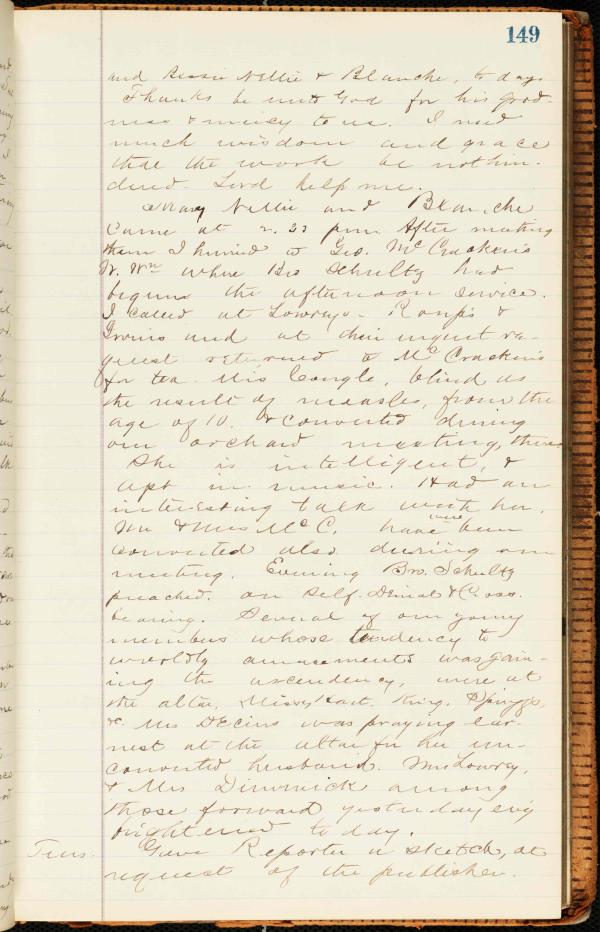 149
and Bessie Nellie & Blanche, to day.
Thanks be unto God for his good-
ness & mercy to us. I need
much wisdom and grace
that the work be not hin-
dered. Lord help me.
Mary Nellie and Blanche
came at 2.33 p.m. After meeting
them I hurried to Geo. McCracken's
where Bro Schultz had
begun the afternoon service.
I called at Lowreys -
and at their urgent re-
quest returned to McCracken's
for tea. Miss Congle, blind as
the result of measles, from the
age of 10. & converted during
our orchard meeting, there.
She is intelligent, &
apt in music. Had an
interesting talk with her.
Mr & Mrs McC. have been
converted also during our
meeting. Evening Bro. Schultz
preached. on Self-Denial & Cross
bearing. Several of our young
members whose tendency to
worldly amusements was gain-
ing the ascendency, were at
the altar, Misses Hart. King.
&c. Mrs was praying ear-
nest at the altar for her un-
converted husband. Mrs Lowry,
& Mrs Dimmick among
those forward yesterday ev'g
brightened to day.
Tues. Gave Reporter a sketch, at
request of the publisher.